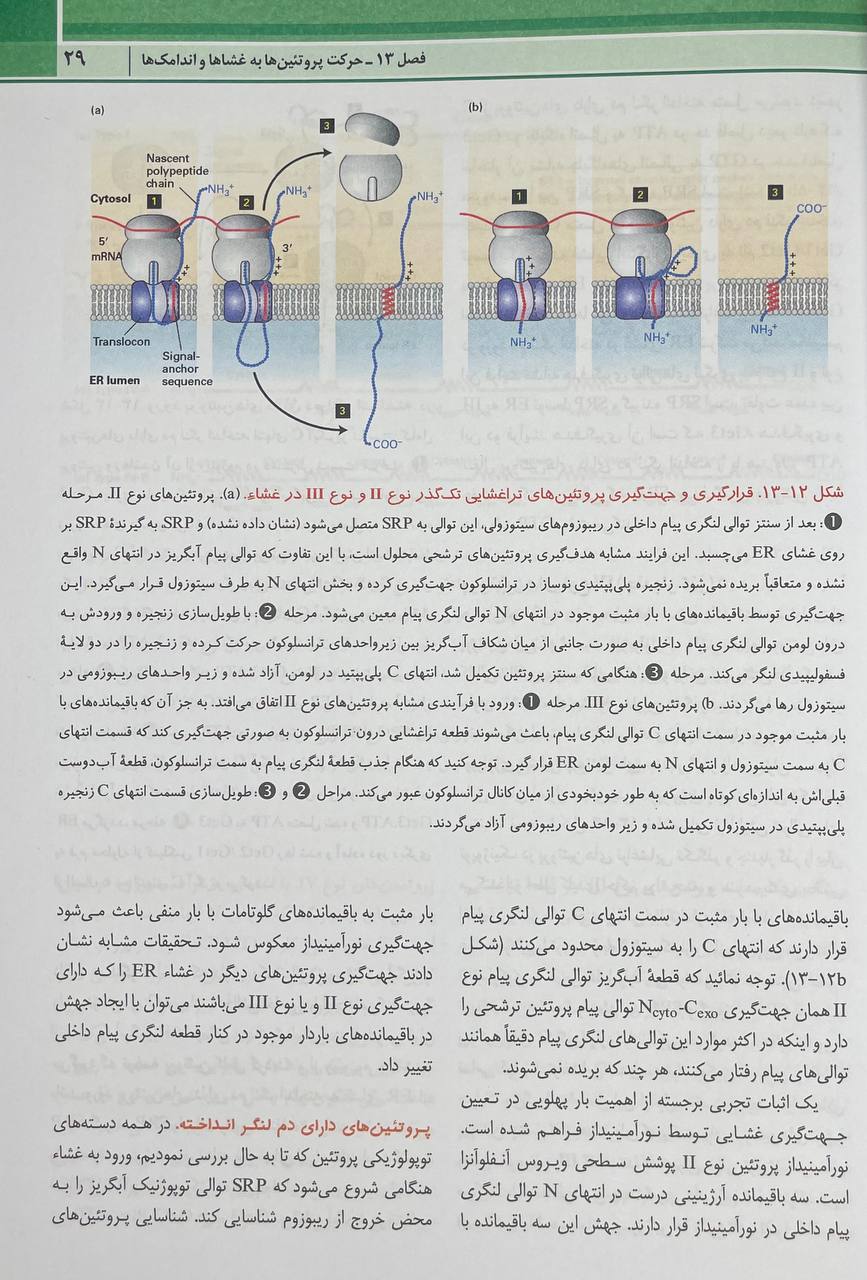 فصل ۱۳ ـ حرکت پروتئین‌ها به غشاها و اندامک‌ها
۲۹
(a)
3
Nascent
polypeptide
chain
NH₃⁺
NH₃⁺
NH₃⁺
Cytosol
1
2
5′
mRNA
3′
+++
+++
+++
Translocon
Signal-
anchor
sequence
ER lumen
3
COO⁻
(b)
1
2
3
COO⁻
+++
+++
+++
NH₃⁺
NH₃⁺
NH₃⁺
شکل ۱۲-۱۳. قرارگیری و جهت‌گیری پروتئین‌های تراغشایی تک‌گذر نوع II و نوع III در غشاء. (a). پروتئین‌های نوع II. مرحله
❶: بعد از سنتز توالی لنگری پیام داخلی در ریبوزوم‌های سیتوزولی، این توالی به SRP متصل می‌شود (نشان داده نشده) و SRP، به گیرندهٔ SRP بر
روی غشای ER می‌چسبد. این فرایند مشابه هدف‌گیری پروتئین‌های ترشحی محلول است، با این تفاوت که توالی پیام آبگریز در انتهای N واقع
نشده و متعاقباً بریده نمی‌شود. زنجیره پلی‌پپتیدی نوساز در ترانسلوکون جهت‌گیری کرده و بخش انتهای N به طرف سیتوزول قرار می‌گیرد. این
جهت‌گیری توسط باقیمانده‌های با بار مثبت موجود در انتهای N توالی لنگری پیام معین می‌شود. مرحله ❷: با طویل‌سازی زنجیره و ورودش به
درون لومن توالی لنگری پیام داخلی به صورت جانبی از میان شکاف آب‌گریز بین زیرواحدهای ترانسلوکون حرکت کرده و زنجیره را در دو لایهٔ
فسفولیپیدی لنگر می‌کند. مرحله ❸: هنگامی که سنتز پروتئین تکمیل شد، انتهای C پلی‌پپتید در لومن، آزاد شده و زیر واحدهای ریبوزومی در
سیتوزول رها می‌گردند. b) پروتئین‌های نوع III. مرحله ❶: ورود با فرآیندی مشابه پروتئین‌های نوع II اتفاق می‌افتد. به جز آن که باقیمانده‌های با
بار مثبت موجود در سمت انتهای C توالی لنگری پیام، باعث می‌شوند قطعه تراغشایی درون ترانسلوکون به صورتی جهت‌گیری کند که قسمت انتهای
C به سمت سیتوزول و انتهای N به سمت لومن ER قرار گیرد. توجه کنید که هنگام جذب قطعهٔ لنگری پیام به سمت ترانسلوکون، قطعهٔ آب‌دوست
قبلی‌اش به اندازه‌ای کوتاه است که به طور خودبخودی از میان کانال ترانسلوکون عبور می‌کند. مراحل ❷ و ❸: طویل‌سازی قسمت انتهای C زنجیره
پلی‌پپتیدی در سیتوزول تکمیل شده و زیر واحدهای ریبوزومی آزاد می‌گردند.
باقیمانده‌های با بار مثبت در سمت انتهای C توالی لنگری پیام
قرار دارند که انتهای C را به سیتوزول محدود می‌کنند (شکل
۱۲b-۱۳). توجه نمائید که قطعهٔ آب‌گریز توالی لنگری پیام نوع
II همان جهت‌گیری Ncyto-Cexo توالی پیام پروتئین ترشحی را
دارد و اینکه در اکثر موارد این توالی‌های لنگری پیام دقیقاً همانند
توالی‌های پیام رفتار می‌کنند، هر چند که بریده نمی‌شوند.
یک اثبات تجربی برجسته از اهمیت بار پهلویی در تعیین
جهت‌گیری غشایی توسط نورآمینیداز فراهم شده است.
نورآمینیداز پروتئین نوع II پوشش سطحی ویروس آنفلوآنزا
است. سه باقیمانده آرژینینی درست در انتهای N توالی لنگری
پیام داخلی در نورآمینیداز قرار دارند. جهش این سه باقیمانده با
بار مثبت به باقیمانده‌های گلوتامات با بار منفی باعث می‌شود
جهت‌گیری نورآمینیداز معکوس شود. تحقیقات مشابه نشان
دادند جهت‌گیری پروتئین‌های دیگر در غشاء ER را که دارای
جهت‌گیری نوع II و یا نوع III می‌باشند می‌توان با ایجاد جهش
در باقیمانده‌های باردار موجود در کنار قطعه لنگری پیام داخلی
تغییر داد.
پروتئین‌های دارای دم لنگر انداخته. در همه دسته‌های
توپولوژیکی پروتئین که تا به حال بررسی نمودیم، ورود به غشاء
هنگامی شروع می‌شود که SRP توالی توپوژنیک آبگریز را به
محض خروج از ریبوزوم شناسایی کند. شناسایی پروتئین‌های